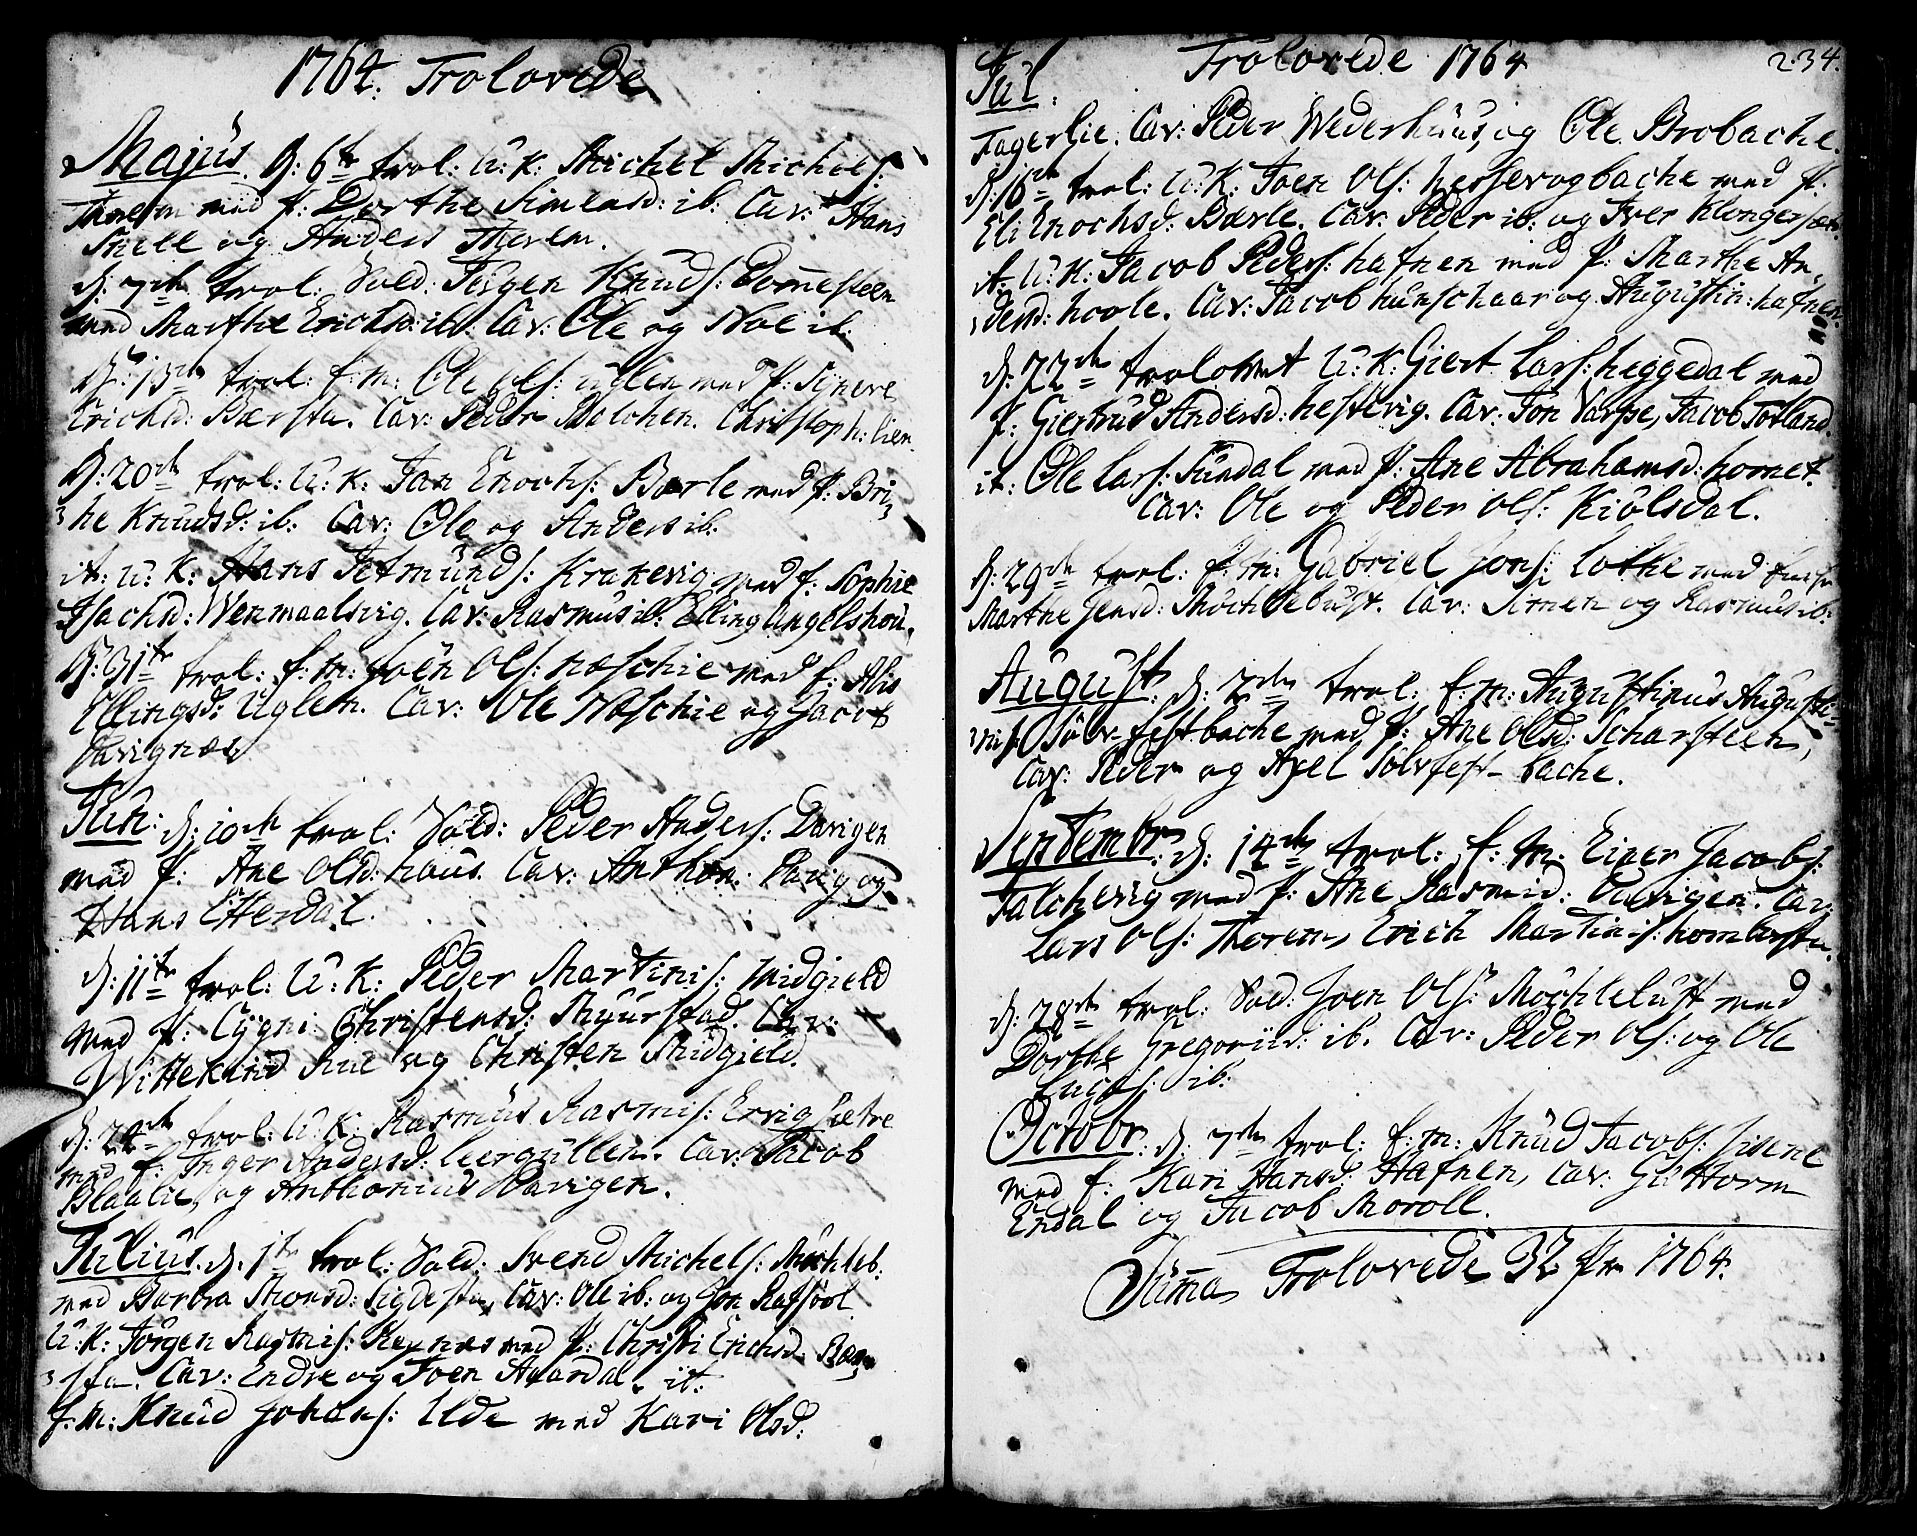 1764. Trolovede
Majus. D: 6te trol: U: K: Michel Michels:
med P: Dorthe Simensd: ib: Cav: Hans
Snelle og Anders Therem.
D: 7de trol: Sold: Jørgen Knuds: Domesteen
med Marthe Erichsd: ib: Cav: Ole og Noe ib.
D: 13de trol: E: M: Ole Ols: Uglen med P: Sinere
Erichsd: Bærsta. Cav: Peder Balchen. Christoph: Lien
D: 20de trol: U: K: Jan Enochs: Barle med P: Bri-
the Knudsd: ib: Cav: Ole og Anders ib.
it: U: K: Hans Jetmunds: Krakevig med P: Sophie
Isachd: Wenmaalsvig. Cav: Rasmus ib: Elling Angelshou.
D: 31te trol: E: M: Joen Ols: Naschie med P: Alis
Ellingsd: Uglen. Cav: Ole Naschie og Jacob
Davignæs
Jun: D: 10de trol: Sold: Peder Anders: Davigen
med P: Ane Olsd: haus. Cav: Anthon: Davig og
Hans Otterdal.
D: 11te trol: U: K: Peder Martinis: Midgield
med P: Cygni Christensd: Myurstad. Cav:
Wittekind og Christen Midgield.
D: 24de trol: U: K: Rasmus Rasmis: Ervig sætre
med P: Inger Andersd: Leergullen. Cav: Jacob
Blaalie, og Anthonius Davigen.
Julius. D. 1te trol: Sold: Svend Michels: Mochleb:
med Barbra Monsd: Sigdestu, Cav: Ole ib: og Jon Rafsøol
U: K: Jørgen Rasmis: Reynæs med P: Christi Erichsd: Bær-
sta. Cav: Endre og Joen Aaardal. it:
E: M: Knud Johans: Ilde med Kari Olsd:
Trolovede 1764 234.
Jul.
Fagerlie. Cav: Peder Wederhuus, og Ole Brobache.
D: 16de trol: U: K: Joen Ols: Hessevogbache med P:
Eli Enochsd: Bærle. Cav: Peder ib: og Iver Klongersæt.
it: U: K: Jacob Peders: hafnen med P: Marthe An-
dersd: hoole. Cav: Jacob hunschaar og Augustin: hafnen.
D: 22de trolovet U: K: Giert Lars: heggedal med
P: Giertrud Andersd: hestevig. Cav: Jon Varpe, Jacob Totland.
it: Ole Lars: Sundal med P: Ane Abrahamsd: hornet.
Cav: Ole og Peder Ols: Kiölsdal.
D: 29de trol: E: M: Gabriel Jons: Lothe med
Marthe Jensd: Mochlebust. Cav: Simen og Rasmus ib:
August: D: 2den trol: E: M: Augustinus Augusti-
nis: Sölvfestbache med P: Ane Olsd: Scharsteen,
Cav: Peder og Axel Sölvfest-bache.
Septembr: D: 14de trol: E: M: Einer Jacobs:
Falchevig med P: Ane Rasmisd: Davigen. Cav:
Lars Ols: Therem, Erich Martinis: hombersta.
D: 28de trol: Sold: Joen Ols: Mochlebust med
Dorthe Gregoriid: ib. Cav: Peder Ols: og Ole
ib:
Octobr: D: 7de trol: E: M: Knud Jacobs: Sisene
med P: Kari Hansd: Hafnen, Cav: Guttorm
Endal og Jacob Moroll.
Suma Trolovede 32 Par 1764.